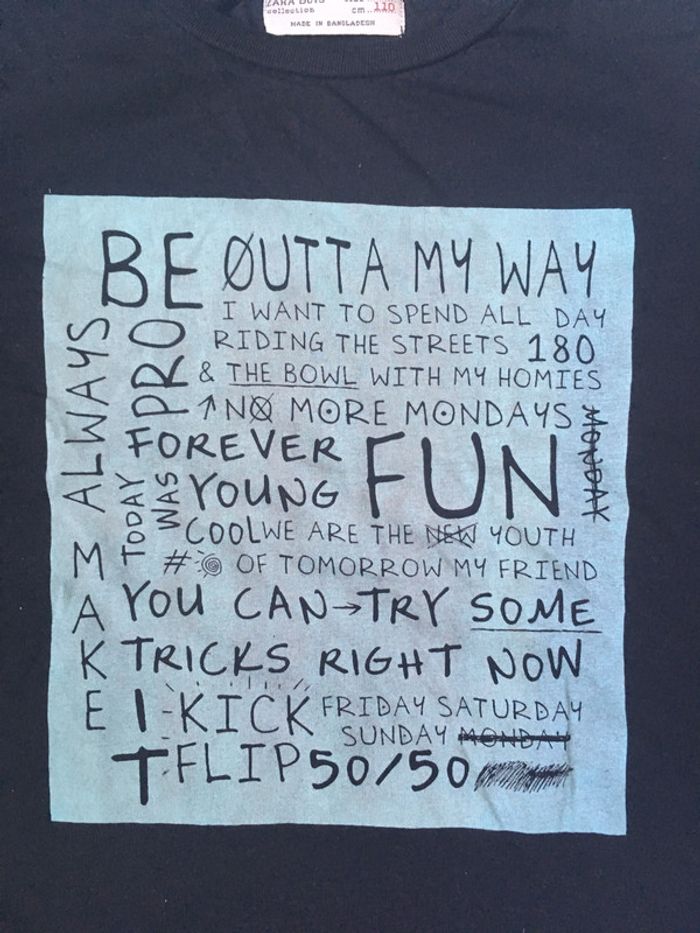 ZARA BOYS
collection
cm 110
MADE IN BANGLADESH
BE ØUTTA MY WAY
I WANT TO SPEND ALL DAY
RIDING THE STREETS 180
& THE BOWL WITH MY HOMIES
↑ NO MORE MONDAYS
MONDAY
ALWAYS
PRO
FOREVER
FUN
TODAY
WAS
YOUNG
COOL WE ARE THE NEW YOUTH
# OF TOMORROW MY FRIEND
MAKE
YOU CAN→TRY SOME
TRICKS RIGHT NOW
IT
KICK FRIDAY SATURDAY
SUNDAY MONDAY
FLIP 50/50